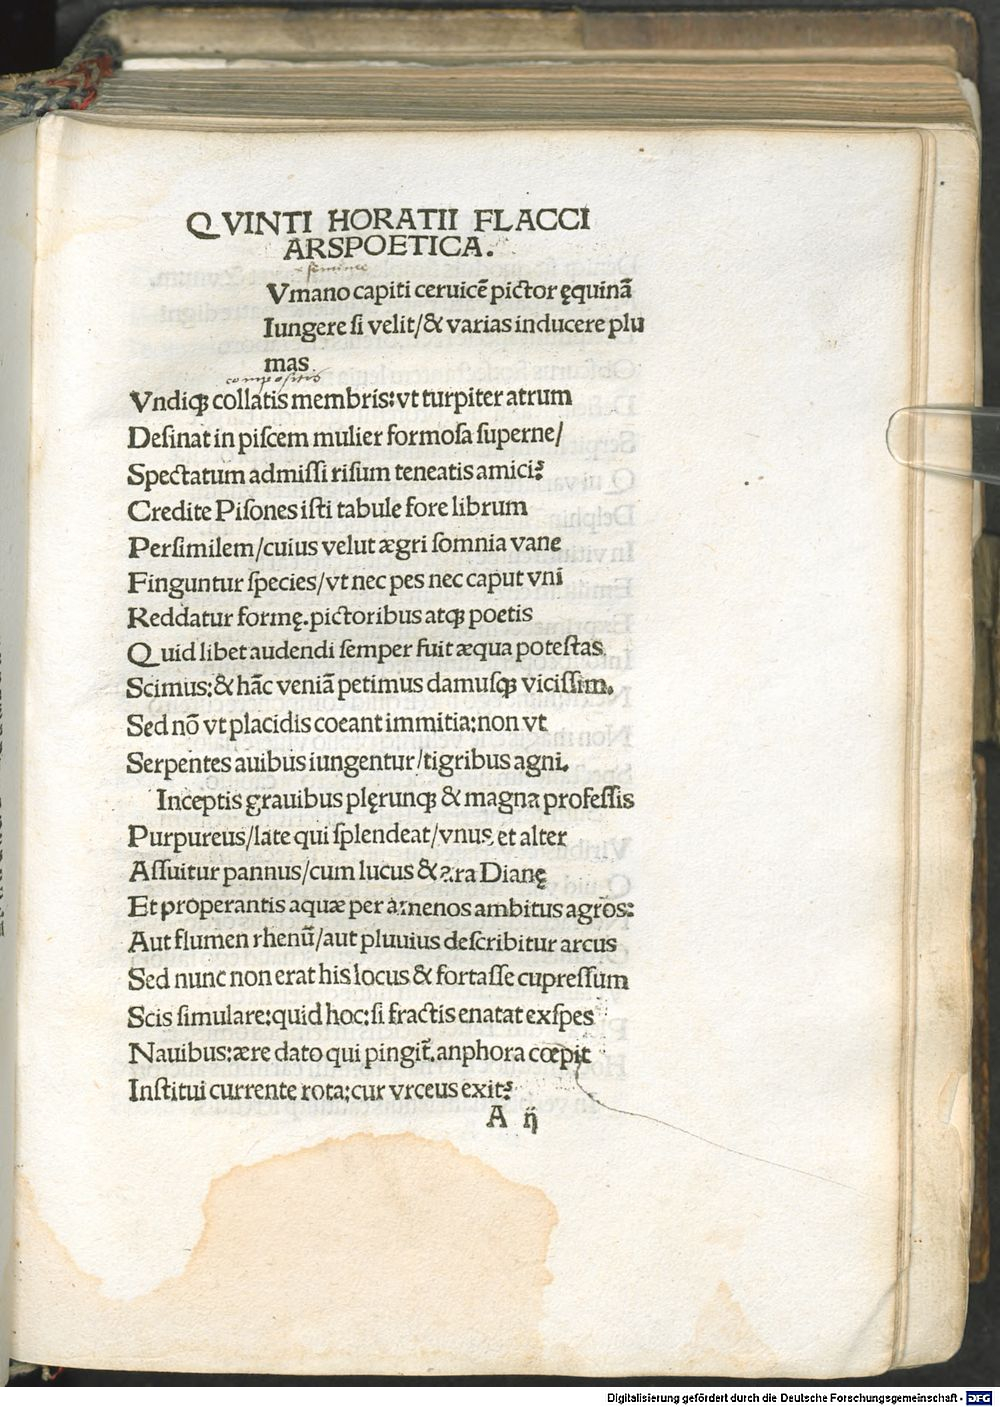 QVINTI HORATII FLACCI
ARSPOETICA.
feminee
Vmano capiti ceruicē pictor ęquinā
Iungere ſi velit/& varias inducere plu
mas
compoſitis
Vndiqꝫ collatis membris: vt turpiter atrum
Deſinat in piſcem mulier formoſa ſuperne/
Spectatum admiſſi riſum teneatis amici?
Credite Piſones iſti tabule fore librum
Perſimilem/cuius velut ægri ſomnia vane
Finguntur ſpecies/vt nec pes nec caput vni
Reddatur formę.pictoribus atqꝫ poetis
Quid libet audendi ſemper fuit æqua poteſtas
Scimus:& hāc veniā petimus damuſqꝫ viciſſim.
Sed nō vt placidis coeant immitia:non vt
Serpentes auibus iungentur/tigribus agni.
Inceptis grauibus plęrunqꝫ & magna profeſſis
Purpureus/late qui ſplendeat/vnus et alter
Aſſuitur pannus/cum lucus & ara Dianę
Et properantis aquæ per amenos ambitus agros:
Aut flumen rhenū/aut pluuius deſcribitur arcus
Sed nunc non erat his locus & fortaſſe cupreſſum
Scis ſimulare:quid hoc:ſi fractis enatat exſpes
Nauibus:ære dato qui pingit̄.anphora cœpit
Inſtitui currente rota:cur vrceus exit?
A ij
Digitalisierung gefördert durch die Deutsche Forschungsgemeinschaft - DFG